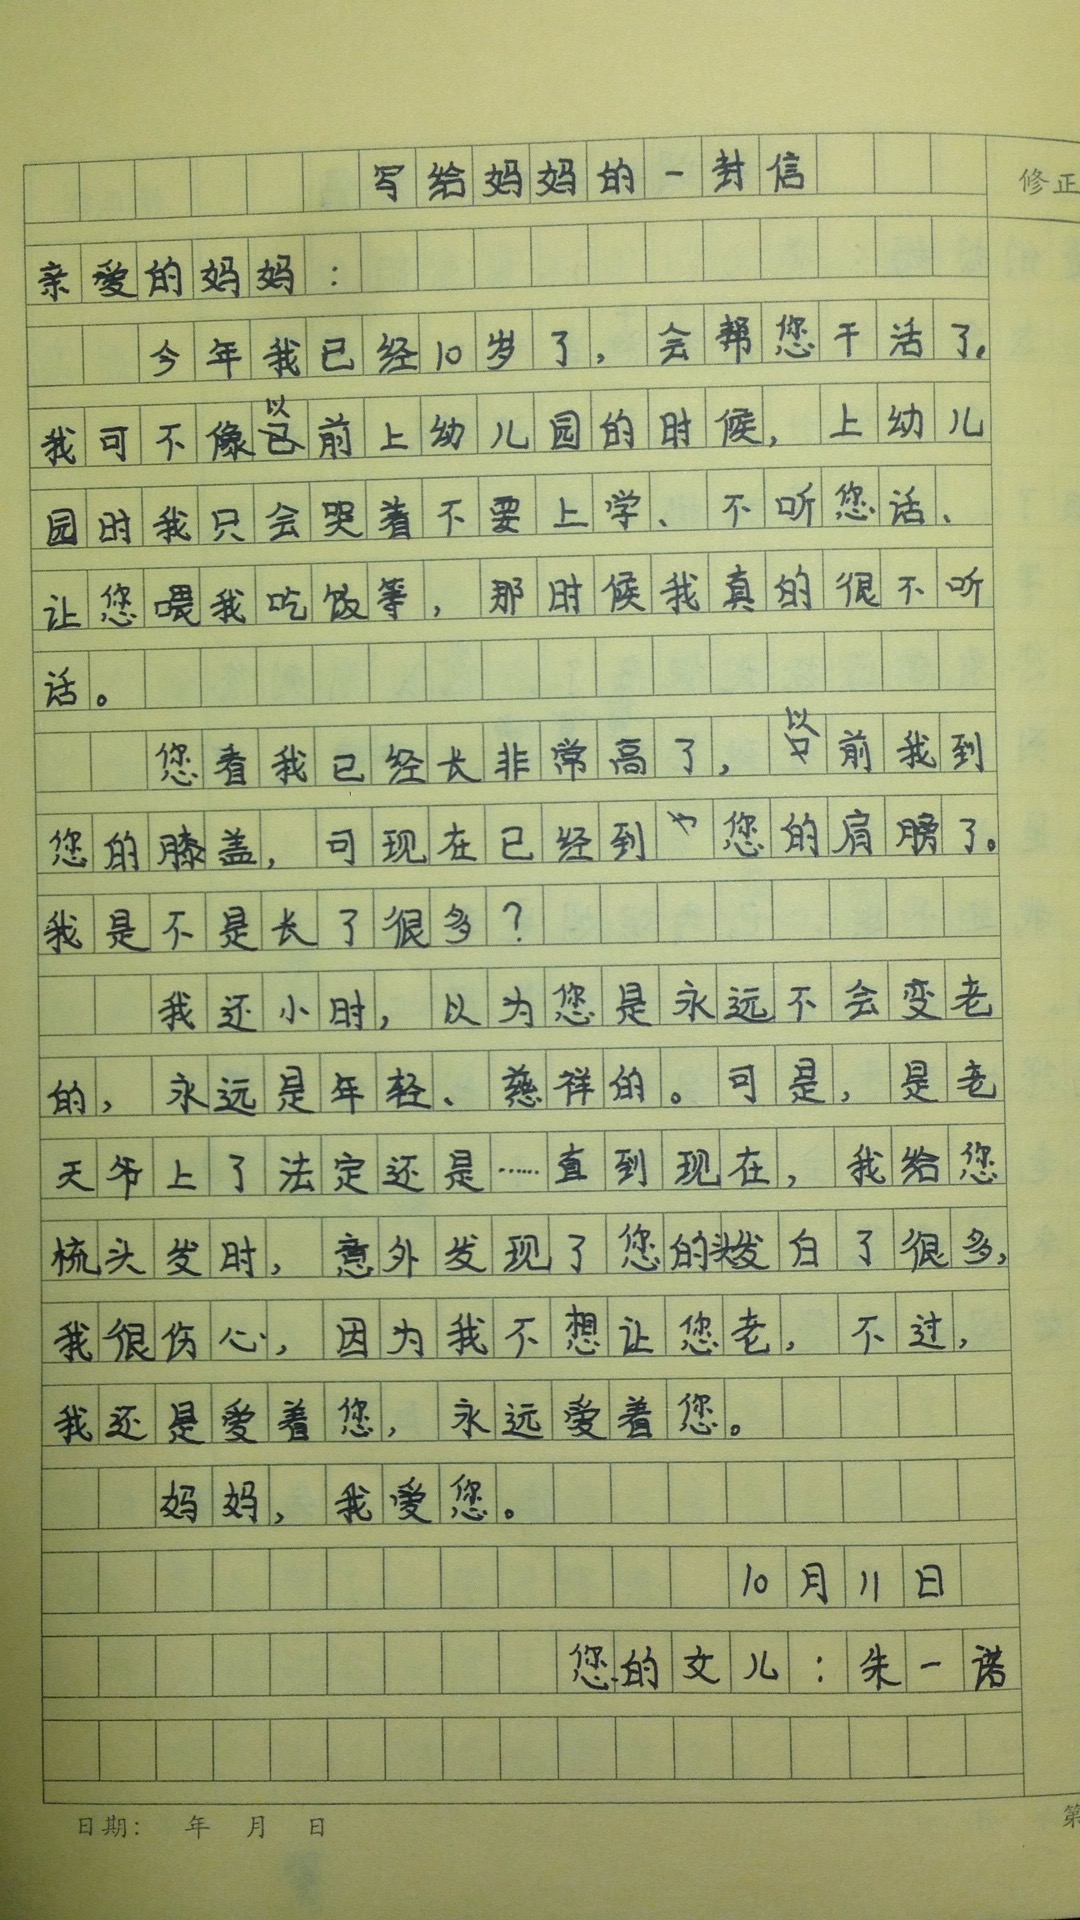 写给妈妈的一封信
修正
亲爱的妈妈：
今年我已经10岁了，会帮您干活了。
我可不像以前上幼儿园的时候，上幼儿
园时我只会哭着不要上学、不听您话、
让您喂我吃饭等，那时候我真的很不听
话。
您看我已经长非常高了，以前我到
您的膝盖，可现在已经到您的肩膀了。
我是不是长了很多？
我还小时，以为您是永远不会变老
的，永远是年轻、慈祥的。可是，是老
天爷上了法定还是……直到现在，我给您
梳头发时，意外发现了您的头发白了很多，
我很伤心，因为我不想让您老，不过，
我还是爱着您，永远爱着您。
妈妈，我爱您。
10月11日
您的女儿：朱一诺
日期： 年 月 日
第